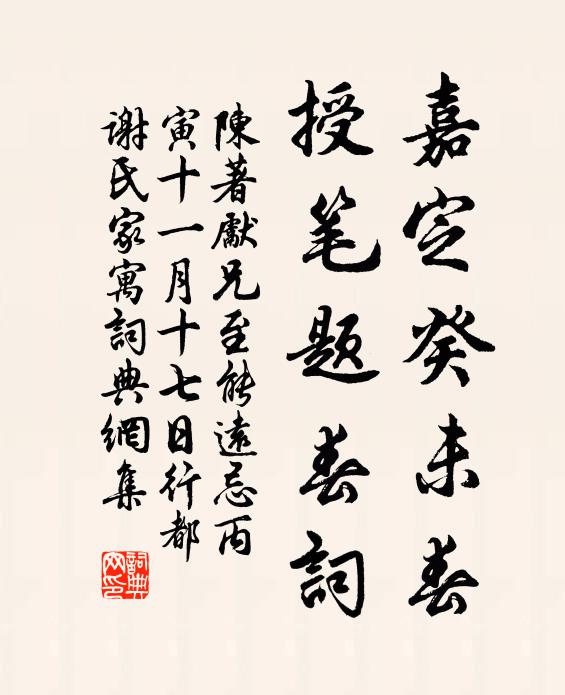 嘉定癸未春
授笔题春詞
陳著獻兄至能遠忌丙
寅十一月十七日行都
谢氏家寓詞典網集
詞典
网印